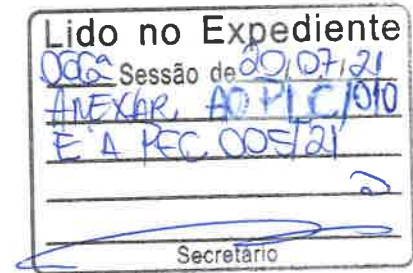 Lido no Expediente
Sessão de 20/07/21
ANEXAR AO PLC/010
E A PEC 005/21
Secretário